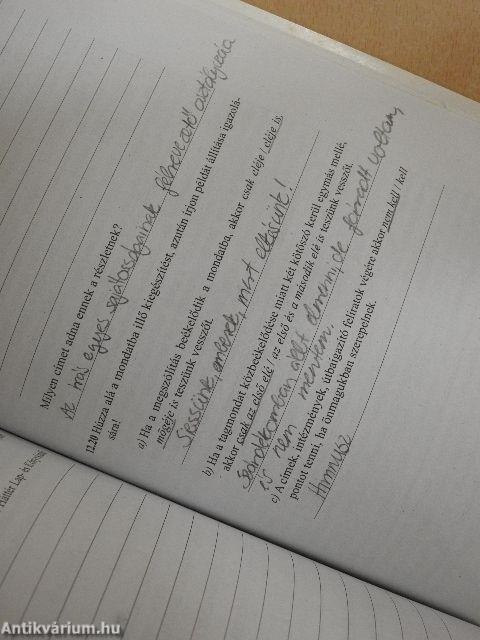 Milyen címet adna ennek a részletnek?
Az írás egyes sajátosságainak felnevezető osztályozása
12.20 Húzza alá a mondatba illő kiegészítést, azután írjon példát állítása igazolá-
sára!
a) Ha a megszólítás beékelődik a mondatba, akkor csak eléje / eléje is,
mögéje is teszünk vesszőt.
Siessünk, emberek, mert elkésünk!
b) Ha a tagmondat közbeékelődése miatt két kötőszó kerül egymás mellé,
akkor csak az első elé / az első és a második elé is teszünk vesszőt.
álltam de fáradt voltam,
is nem mertem.
c) A címek, intézmények, útbaigazító feliratok végére akkor nem kell / kell
pontot tenni, ha önmagukban szerepelnek.
Himnusz
Háttér Lap- és
Antikvárium.hu